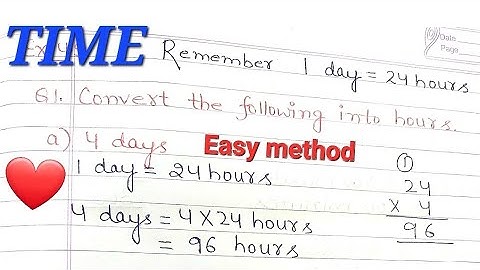 TIME
Remember 1 day = 24 hours
Date
Page
Q1. Convert the following into hours.
a) 4 days
Easy method
1 day = 24 hours
4 days = 4 X 24 hours
= 96 hours
1
24
X 4
96